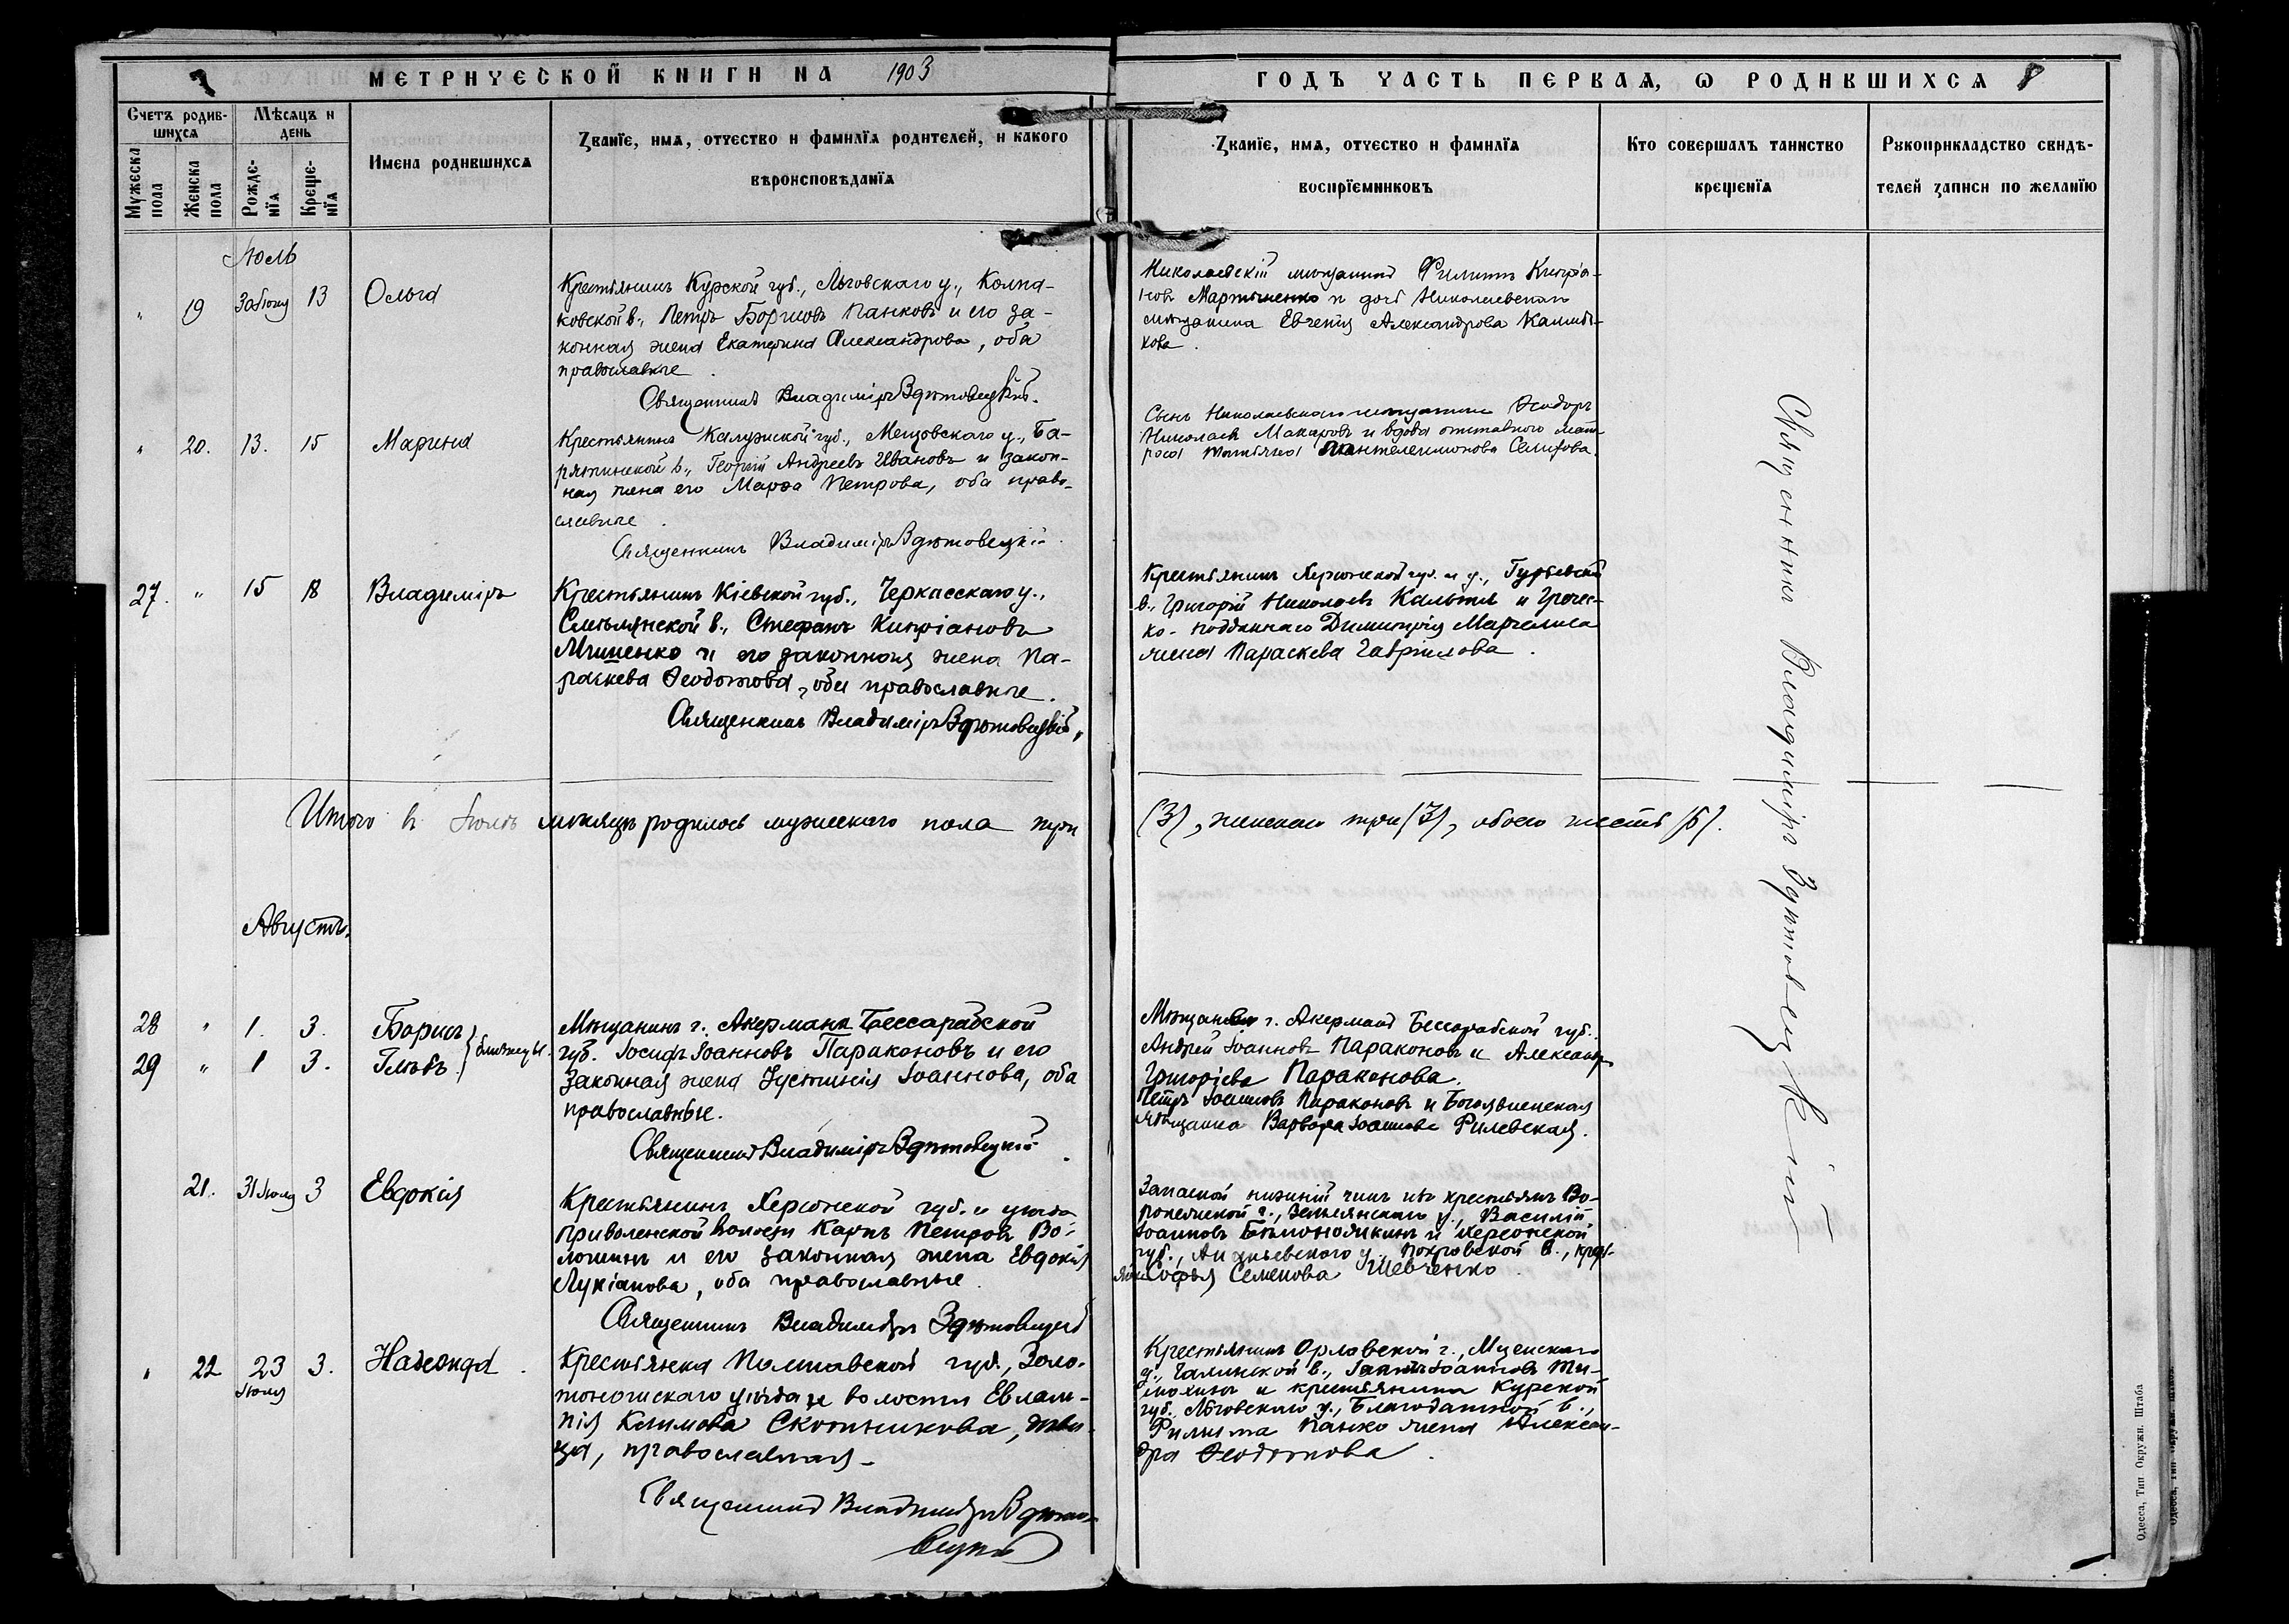 7 МЕТРИЧЕСКОЙ КНИГИ НА 1903
ГОДЪ ЧАСТЬ ПЕРВАЯ, Ѡ РОДИВШИХСЯ 8
Счетъ родив-
шихся
Мѣсяцъ и
день
Мужеска
пола
Женска
пола
Рожде-
нія
Креще-
нія
Имена родившихся
Званіе, имя, отчество и фамилія родителей, и какого
вѣроисповѣданія
Званіе, имя, отчество и фамилія
воспріемниковъ
Кто совершалъ таинство
крещенія
Рукоприкладство свидѣ-
телей записи по желанію
Іюль
" 19 13 Ольга
Крестьянинъ Курской губ., Льговскаго у., Колпа-
ковской в., Петръ Борисовъ Панковъ и его за-
конная жена Екатерина Александрова, оба
православные.
Священникъ Владиміръ Здетовецкій.
Николаевскій мѣщанинъ Филиппъ Кипріа-
новъ Мартыненко и дочь Николаевскаго
мѣщанина Евгенія Александрова Калмы-
кова.
" 20. 13. 15 Марина
Крестьянинъ Калужской губ., Мещовскаго у., Ба-
рятинской в., Георгій Андреевъ Ивановъ и закон-
ная жена его Марѳа Петрова, оба право-
славные.
Священникъ Владиміръ Здетовецкій
Сынъ Николаевскаго мѣщанина Ѳеодоръ
Николаевъ Макаровъ и вдова отставного мат-
роса Татьяна Пантелеимонова Селифова.
27. " 15 18 Владиміръ
Крестьянинъ Кіевской губ., Черкасскаго у.,
Смѣлянской в., Стефанъ Кипріановъ
Мишенко и его законная жена Па-
раскева Ѳеодотова, оба православные.
Священникъ Владиміръ Здетовецкій
Крестьянинъ Херсонской губ. и у., Гурьевской
в., Григорій Николаевъ и Гречес-
ко-подданнаго Димитрія Маргелиса
жена Параскева Гаврилова.
Итого въ Іюлѣ мѣсяцѣ родилось мужескаго пола три
(3), женскаго три (3), обоего шесть (6).
Августъ.
28 " 1. 3. Борисъ
29 " 1 3. Глѣбъ
близнецы.
Мѣщанинъ г. Акермана Бессарабской
губ. Іосифъ Іоанновъ Параконовъ и его
законная жена Іустинія Іоаннова, оба
православные.
Священникъ Владиміръ Здетовецкій.
Мѣщане г. Акермана Бессарабской губ.
Андрей Іоанновъ Параконовъ и Александра
Григоріева Параконова.
Петръ Іоанновъ Параконовъ и Богоявленская
мѣщанка Варвара Іоаннова Рилевская.
21. 31 Іюля 3 Евдокія
Крестьянинъ Херсонской губ. и уѣзда
Привольненской волости Карпъ Петровъ Во-
лошинъ и его законная жена Евдокія
Лукіанова, оба православные.
Священникъ Владиміръ Здетовецкій
Запасной нижній чинъ изъ крестьянъ Во-
ронежской г., Землянскаго у., Василій
Іоанновъ и Херсонской
губ., Ананьевскаго у., Покровской в., крест-
янка Софья Семенова Шевченко.
" 22 23 Іюля 3. Надежда.
Крестьянка Полтавской губ., Золо-
тоношскаго уѣзда и волости Евлам-
пія Климова Скотникова, дѣви-
ца, православная.
Священникъ Владиміръ Здето-
вецкій
Крестьянинъ Орловской г., Мценскаго
у., в., Іоаннъ Іоанновъ Ти-
мохинъ и крестьянина Курской
губ. Льговскаго у., Благодатной в.,
Филиппа Панко жена Алексан-
дра Ѳеодотова.
Священникъ Владиміръ Здетовецкій
Одесса, Тип. Окружн. Штаба